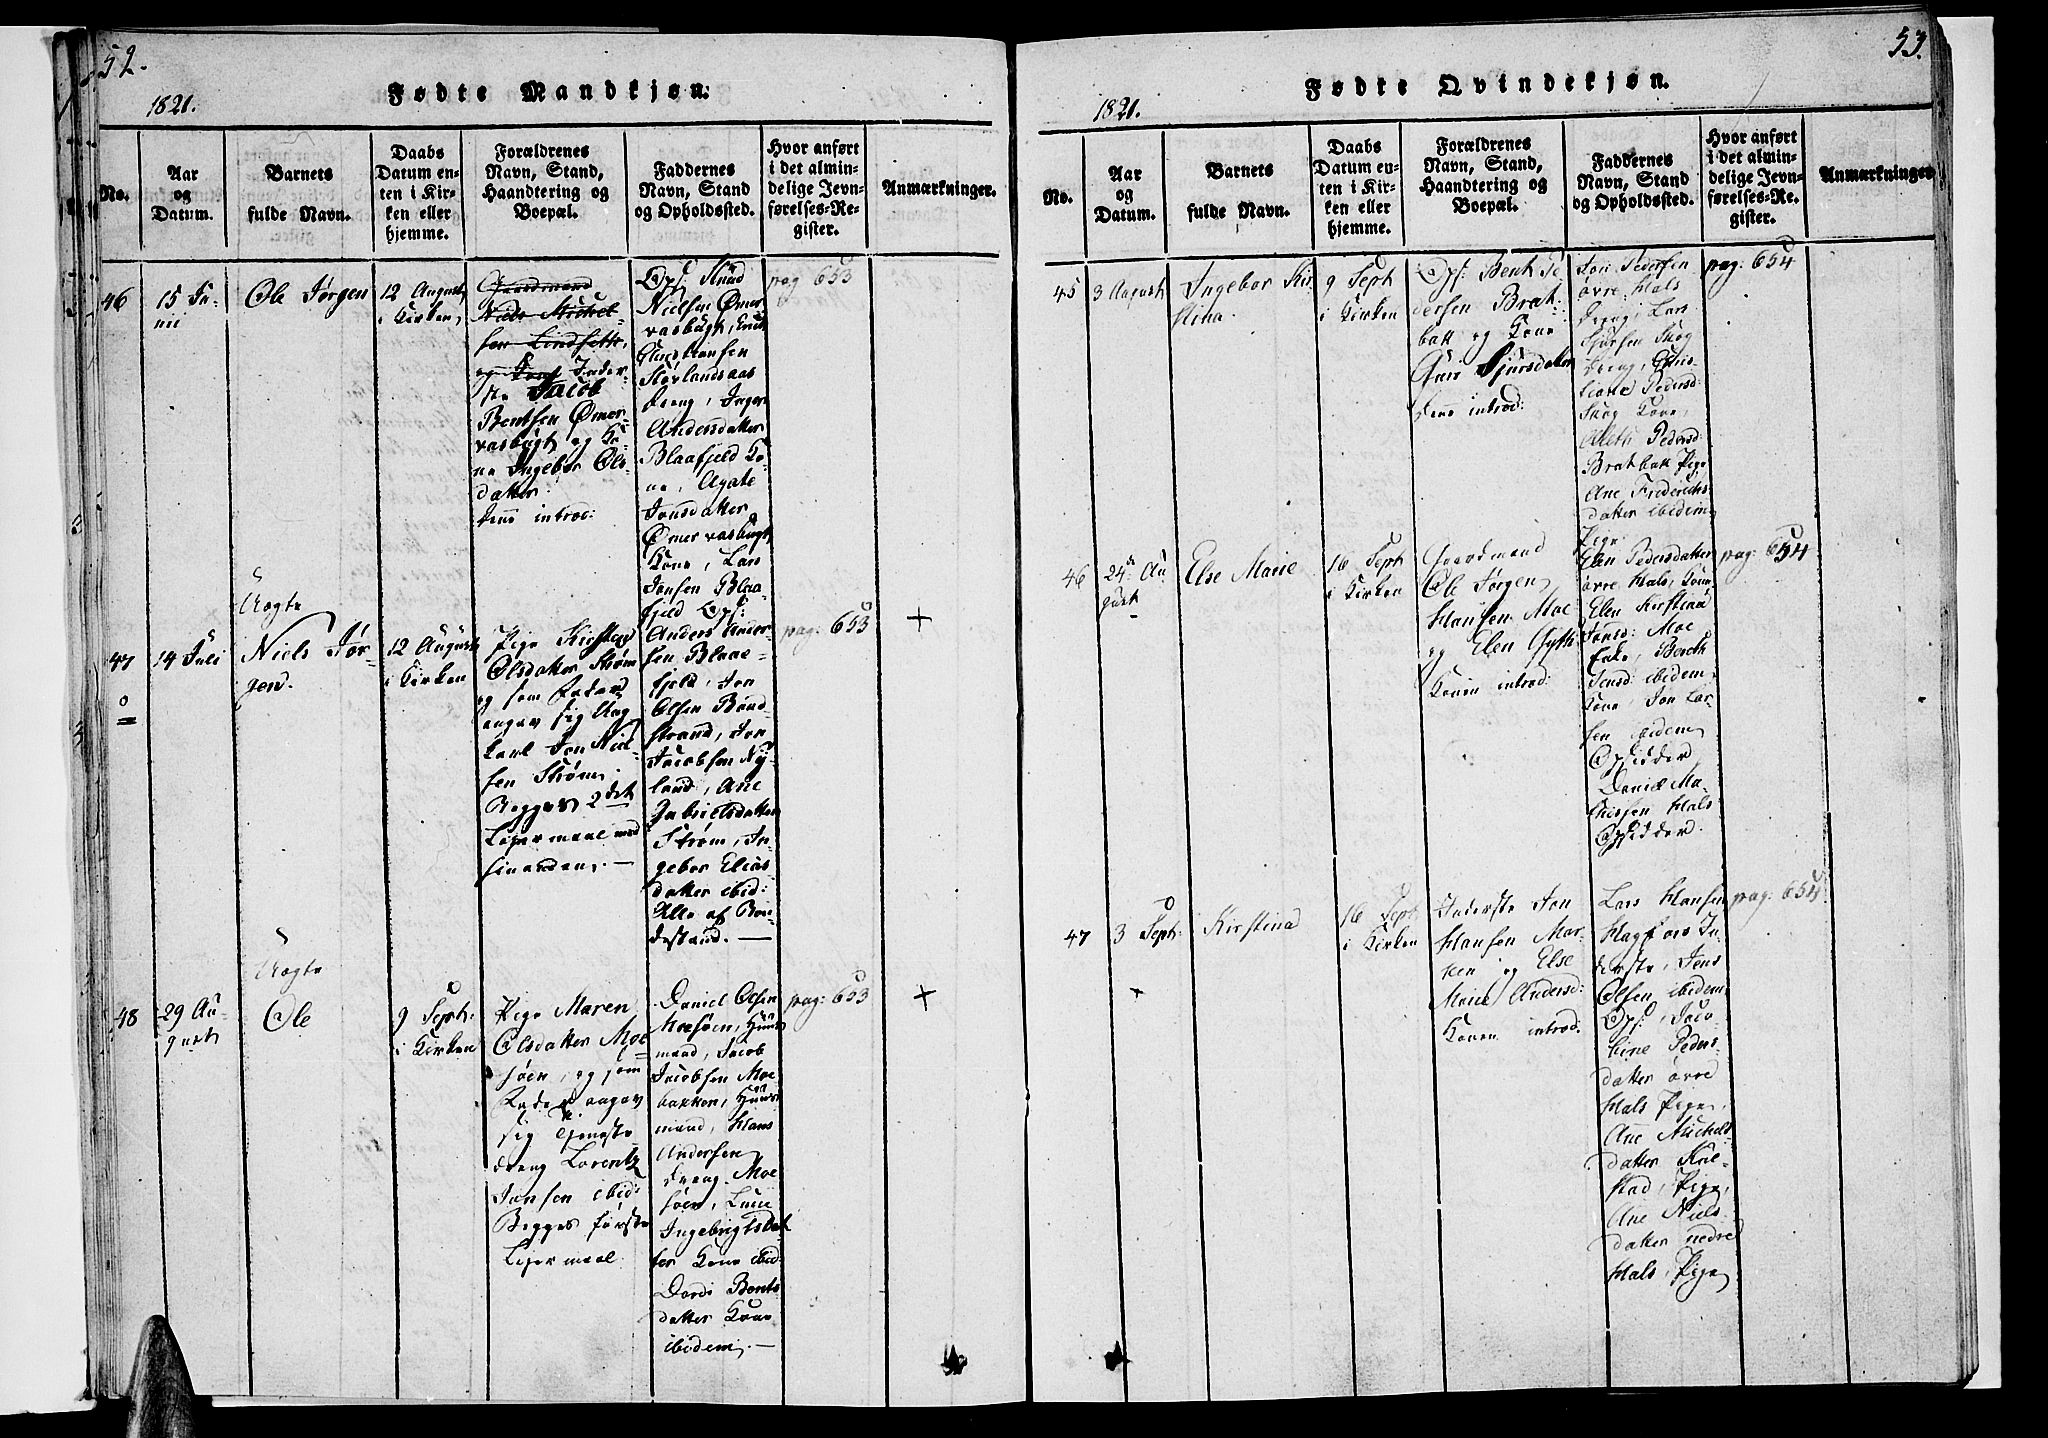 52.
Fødte Mandkjøn.
1821.
No.
Aar
og
Datum.
Barnets
fulde Navn.
Daabs
Datum en-
ten i Kir-
ken eller
hjemme.
Forældrenes
Navn, Stand,
Haandtering og
Boepæl.
Faddernes
Navn, Stand
og Opholdssted.
Hvor anført
i det almin-
delige Jevn-
førelses-Re-
gister.
Anmærkninger.
46
15 Ju-
nii
Ole Jørgen
12 August
i Kirken
Gaardmand
Niels Michel-
sen Lindseth,
og
Inder-
ste Jacob
Bentsen Ømer-
vasbugt og Ko-
ne Ingebor Ols-
datter
introd:
Ops: Knud
Nielsen Ømer-
vasbugt,
Christensen
Størlandsaas
dreng, Inger
Andersdatter
Blaafjeld Ko-
ne, Agate
Jonsdatter
Ømervasbugt
Kone, Lars
Jonsen Blaa-
fjeld Ops:
pag 653
47
14 Juli
Uægte
Niels Jør-
gen.
12 August
i Kirken
Pige Kirsten
Olsdatter Strøm
og som Fader
angav sig Ung-
karl Jon Niel-
sen Strøm.
Begges 2det
Leiermaal med
hinanden. —
Anders Ander-
sen Blaae-
fjeld, Jon
Olsen Bond-
strand, Jon
Jacobsen Ny-
land, Ane
Gabrielsdatter
Strøm, In-
gebor Elias
datter ibid:
Alle af Bon-
destand. —
pag: 653
+
48
29 Au-
gust
Uægte
Ole
9 Sept:
i Kirken
Pige Maren
Olsdatter Moe-
søen, og som
Fader angav
sig Tjeneste-
dreng Lorentz
Jonsen ibid:
Begges første
Leiermaal
Daniel Olsen
Moesøen, Huus-
mand, Jacob
Jacobsen Moe-
bakken, Huus-
mand, Hans
Andersen
dreng Moe-
søen, Lucie
Ingebrigtsdat-
ter Kone ibid
Dordi Bents-
datter Kone
ibidem. —
pag: 653
+
53.
Fødte Qvindekjøn.
1821.
No.
Aar
og
Datum.
Barnets
fulde Navn.
Daabs
Datum en-
ten i Kir-
ken eller
hjemme.
Forældrenes
Navn, Stand,
Haandtering og
Boepæl.
Faddernes
Navn, Stand
og Opholdssted.
Hvor anført
i det almin-
delige Jevn-
førelses-Re-
gister.
Anmærkninger.
45
3 August
Ingebor Kir-
stina.
9 Sept
i Kirken
Ops: Bent Pe-
dersen Brat-
bak og Kone
Guri Sjursdatter
introd:
Jon Pedersen
øvre Hals
dreng, Lars
Sjursen Skog
dreng,
Pedersd:
Skog Kone,
Aleth Pedersd:
Bratbak Pige
Ane Frederichs
datter ibidem
Pige
pag: 654
46
24de Au-
gust
Else Marie
16 Sept
i Kirken
Gaardmand
Ole Jørgen
Hansen Moe
og Elen Gyth
Konen introd:
Elen Pedersdatter
øvre Hals, Kone
Elen Kirstina
Jonsd: Moe
Enke, Bereth
Jensd: ibidem
Kone, Jon Lar-
sen ibidem
Opsidder
Daniel Ma-
thisen Hals
Opsidder.
pag: 654
47
3 Sept:
Kirstina
16 Sept
i Kirken
Inderste Jon
Hansen Mar-
ken og Else
Marie Andersd:
Konen introd:
Lars Hansen
Hagfors In-
derste, Jens
Olsen ibidem
Ops:, Jaco-
bine Peders-
datter øvre
Hals Pige,
Ane Michels-
datter
stad, Pige,
Ane Niels-
datter nedre
Hals, Pige
pag: 654